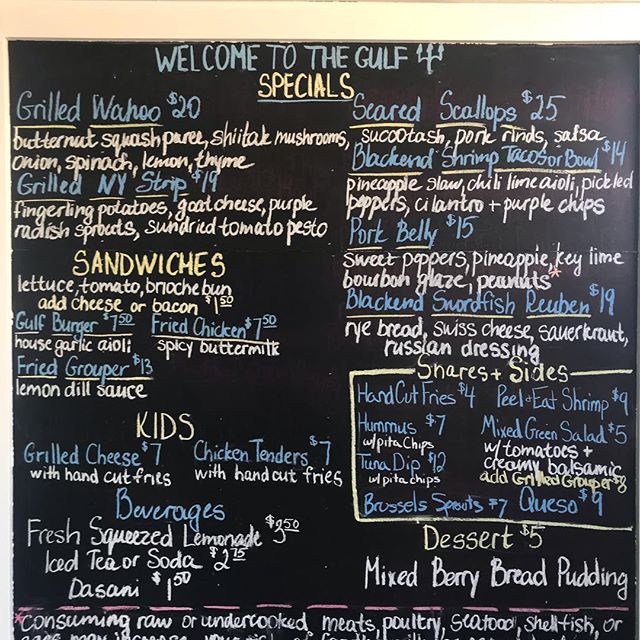 WELCOME TO THE GULF
SPECIALS
Grilled Wahoo $20
butternut squash puree, shiitak mushrooms,
onion, spinach, lemon, thyme
Grilled NY Strip $19
fingerling potatoes, goat cheese, purple
radish sprouts, sundried tomato pesto
Seared Scallops $25
succotash, pork rinds, salsa
Blackend Shrimp Tacos or Bowl $14
pineapple slaw, chili lime aioli, pickled
peppers, cilantro + purple chips
Pork Belly $15
sweet peppers, pineapple, key lime
bourbon glaze, peanuts*
Blackend Swordfish Reuben $19
rye bread, swiss cheese, sauerkraut,
russian dressing
SANDWICHES
lettuce, tomato, brioche bun
add cheese or bacon $1.50
Gulf Burger $7.50 Fried Chicken $7.50
house garlic aioli spicy buttermilk
Fried Grouper $13
lemon dill sauce
KIDS
Grilled Cheese $7 Chicken Tenders $7
with hand cut fries with hand cut fries
Beverages
Fresh Squeezed Lemonade $3.50
Iced Tea or Soda $2.75
Dasani $1.50
Shares + Sides
Hand Cut Fries $4 Peel + Eat Shrimp $9
Hummus $7 Mixed Green Salad $5
w/pita chips w/tomatoes +
Tuna Dip $12 creamy balsamic
w/pita chips add Grilled Grouper
Brussels Sprouts $7 Queso $9
Dessert $5
Mixed Berry Bread Pudding
*consuming raw or undercooked meats, poultry, seafood, shellfish, or